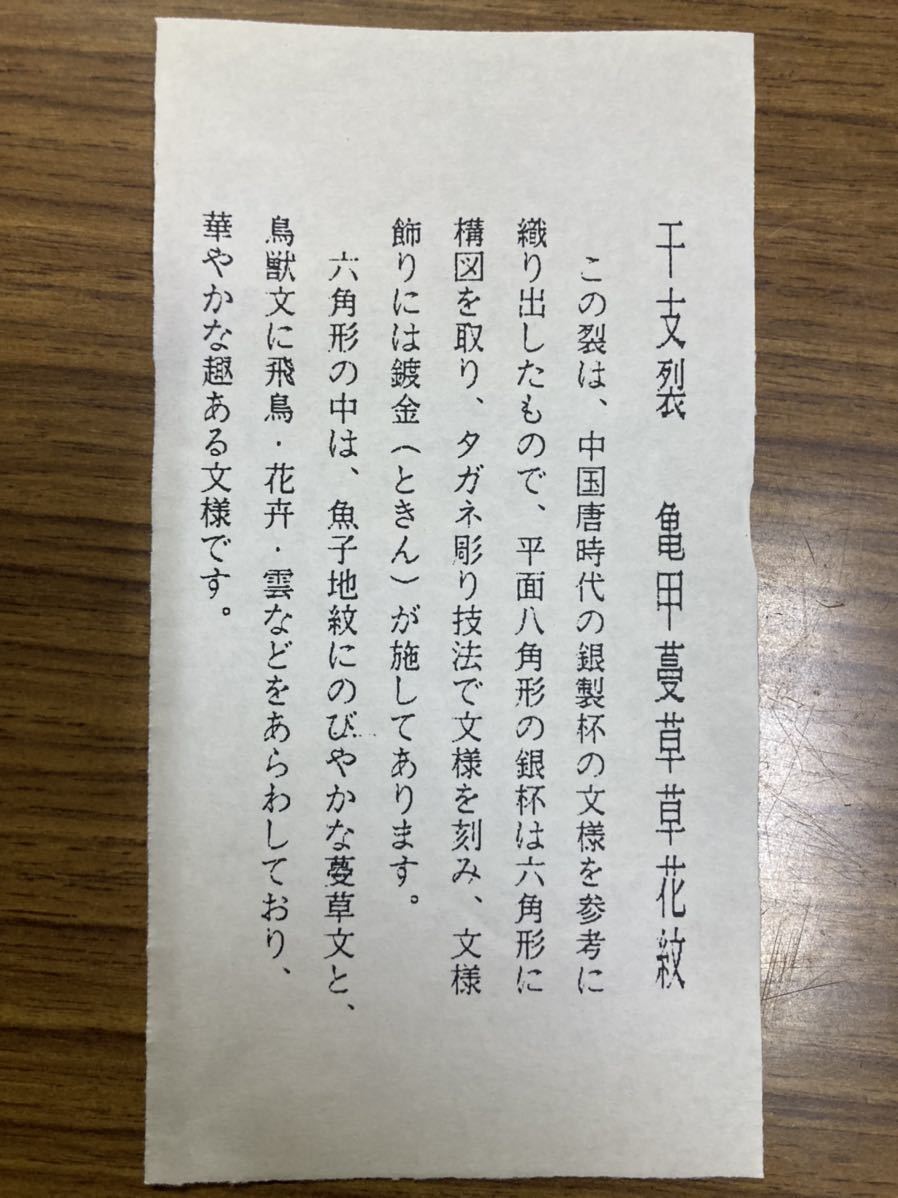 干支裂　亀甲蔓草草花紋
この裂は、中国唐時代の銀製杯の文様を参考に
織り出したもので、平面八角形の銀杯は六角形に
構図を取り、タガネ彫り技法で文様を刻み、文様
飾りには鍍金（ときん）が施してあります。
六角形の中は、魚子地紋にのびやかな蔓草文と、
鳥獣文に飛鳥・花卉・雲などをあらわしており、
華やかな趣ある文様です。